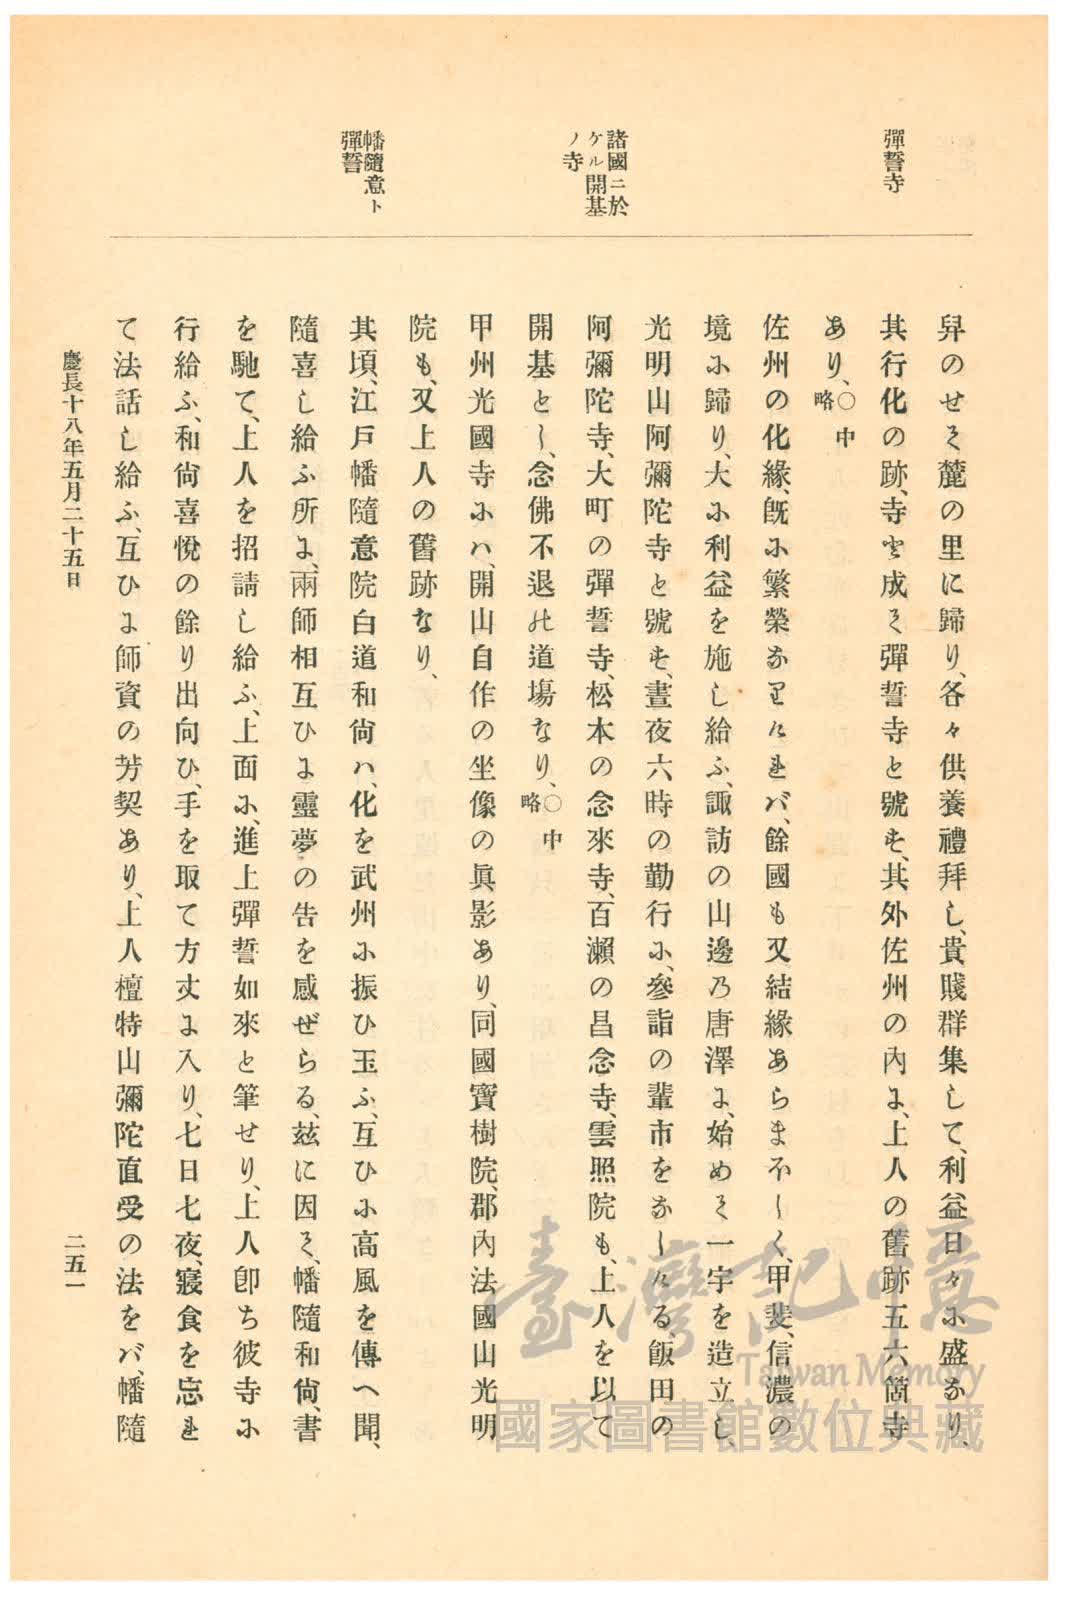 彈誓寺
諸國ニ於
ケル開基
ノ寺
幡隨意ト
彈誓
舁のせて麓の里に歸り、各々供養禮拜し、貴賤群集して、利益日々に盛なり、
其行化の跡、寺と成て彈誓寺と號す、其外佐州の內に、上人の舊跡五六箇寺
あり、〇中略
佐州の化緣、既に繁榮なりければ、餘國も又結緣あらまほしく、甲斐、信濃の
境に歸り、大に利益を施し給ふ、諏訪の山邊乃唐澤に、始めて一宇を造立し、
光明山阿彌陀寺と號す、晝夜六時の勤行に、參詣の輩市をなしける飯田の
阿彌陀寺、大町の彈誓寺、松本の念來寺、百瀨の昌念寺、雲照院も、上人を以て
開基とし、念佛不退の道場なり、〇中略
甲州光國寺にハ、開山自作の坐像の眞影あり、同國寶樹院、郡內法國山光明
院も、又上人の舊跡なり、
其頃、江戶幡隨意院白道和尙ハ、化を武州に振ひ玉ふ、互ひに高風を傳へ聞、
隨喜し給ふ所に、兩師相互ひに靈夢の告を感ぜらる、玆に因て、幡隨和尙、書
を馳て、上人を招請し給ふ、上面に、進上彈誓如來と筆せり、上人卽ち彼寺に
行給ふ、和尙喜悅の餘り出向ひ、手を取て方丈に入り、七日七夜、寢食を忘れ
て法話し給ふ、互ひに師資の芳契あり、上人檀特山彌陀直受の法をバ、幡隨
慶長十八年五月二十五日
二五一
臺灣記憶
Taiwan Memory
國家圖書館數位典藏